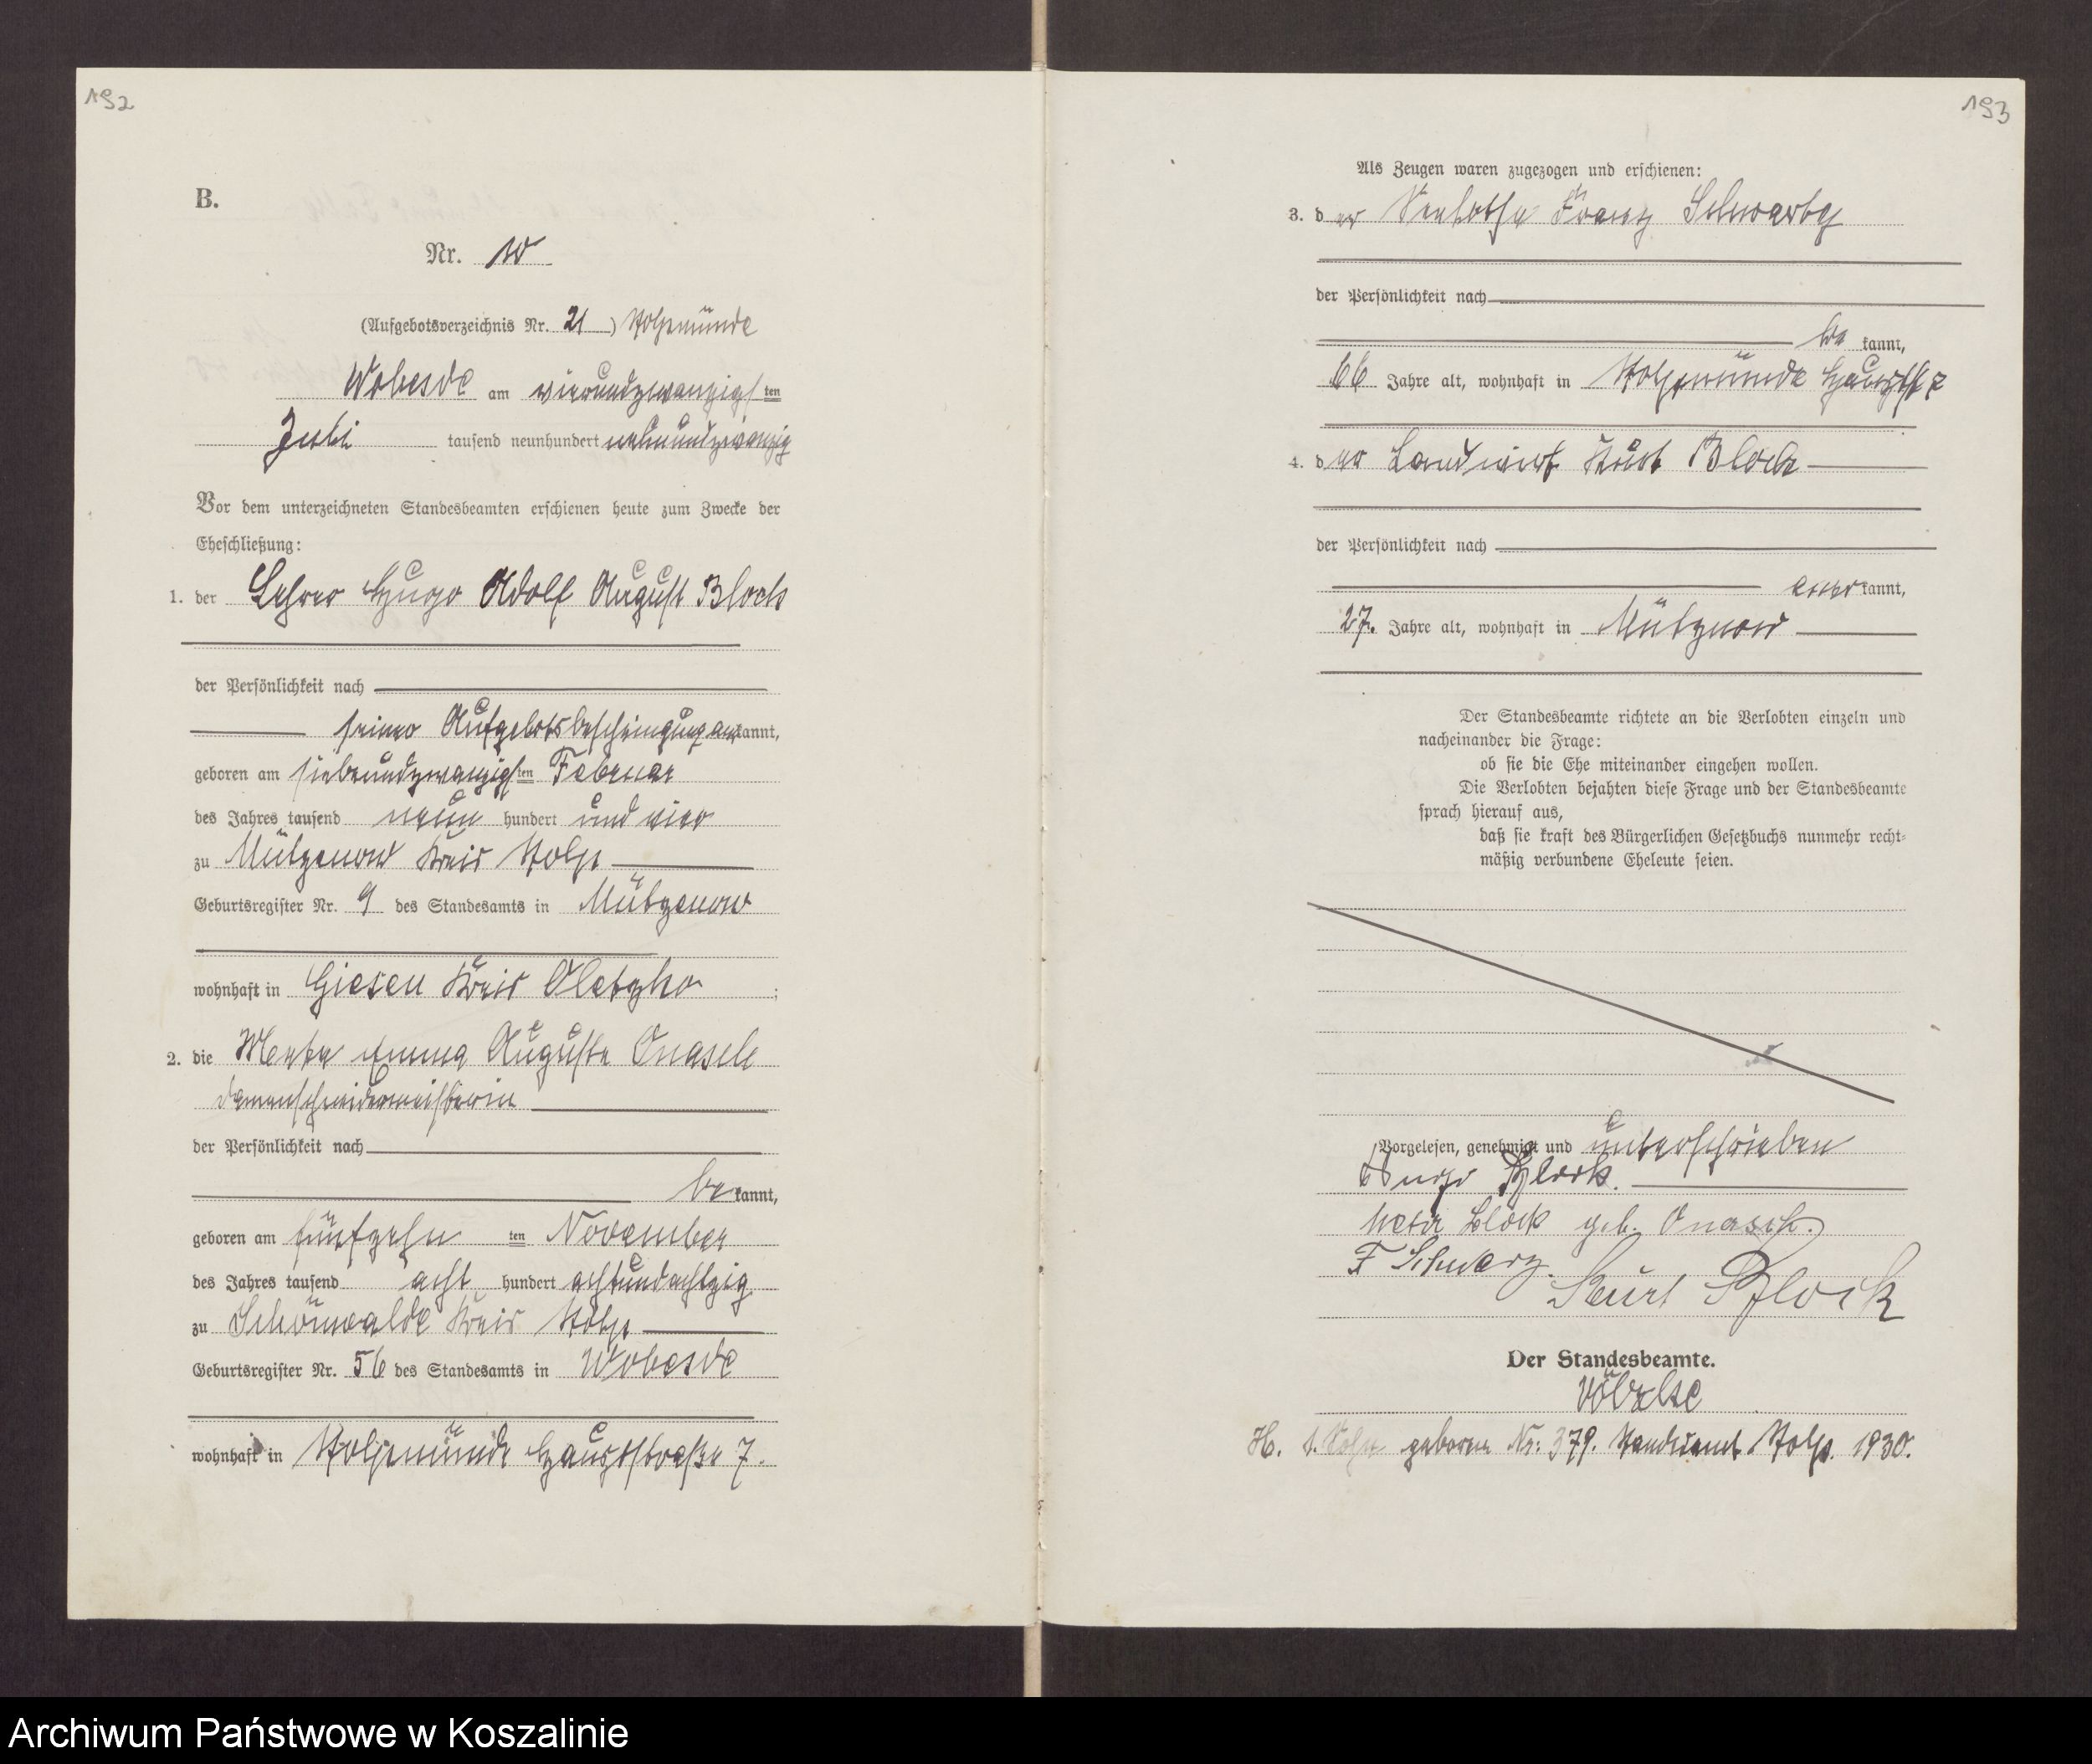 192
B.
Nr. 10
(Aufgebotsverzeichnis Nr. 21) Stolpmünde
Wobesde am vierundzwanzigsten
Juli tausend neunhundert
Vor dem unterzeichneten Standesbeamten erschienen heute zum Zwecke der
Eheschließung:
1. der Lehrer Hugo Adolf August Block
der Persönlichkeit nach
seiner Aufgebotsbescheinigung anerkannt,
geboren am siebenundzwanzigsten Februar
des Jahres tausend neun hundert und vier
zu Mützenow Kreis Stolp
Geburtsregister Nr. 9 des Standesamts in Mützenow
wohnhaft in Giesen Kreis Oletzko;
2. die Emma Auguste Onasch
Damenschneidermeisterin
der Persönlichkeit nach
bekannt,
geboren am fünfzehnten November
des Jahres tausend acht hundert achtundachtzig
zu Schönwalde Kreis Stolp
Geburtsregister Nr. 56 des Standesamts in Wobesde
wohnhaft in Stolpmünde Hauptstraße 7.
193
Als Zeugen waren zugezogen und erschienen:
3. der Franz Schwartz
der Persönlichkeit nach
bekannt,
66 Jahre alt, wohnhaft in Stolpmünde Hauptst 7
4. der Landwirt Kurt Block
der Persönlichkeit nach
kannt,
27. Jahre alt, wohnhaft in Mütznow
Der Standesbeamte richtete an die Verlobten einzeln und
nacheinander die Frage:
ob sie die Ehe miteinander eingehen wollen.
Die Verlobten bejahten diese Frage und der Standesbeamte
sprach hierauf aus,
daß sie kraft des Bürgerlichen Gesetzbuchs nunmehr recht-
mäßig verbundene Eheleute seien.
Vorgelesen, genehmigt und unterschrieben
Hugo Block.
Block geb. Onasch.
F Schwarz.
Kurt Block
Der Standesbeamte.
H. 1. Sohn geboren Nr: 379. Standesamt Stolp. 1930.
Archiwum Państwowe w Koszalinie